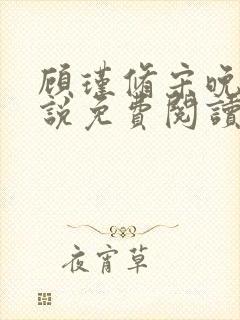 顾瑾脩宋晚
說免費閱讀
夜宵草